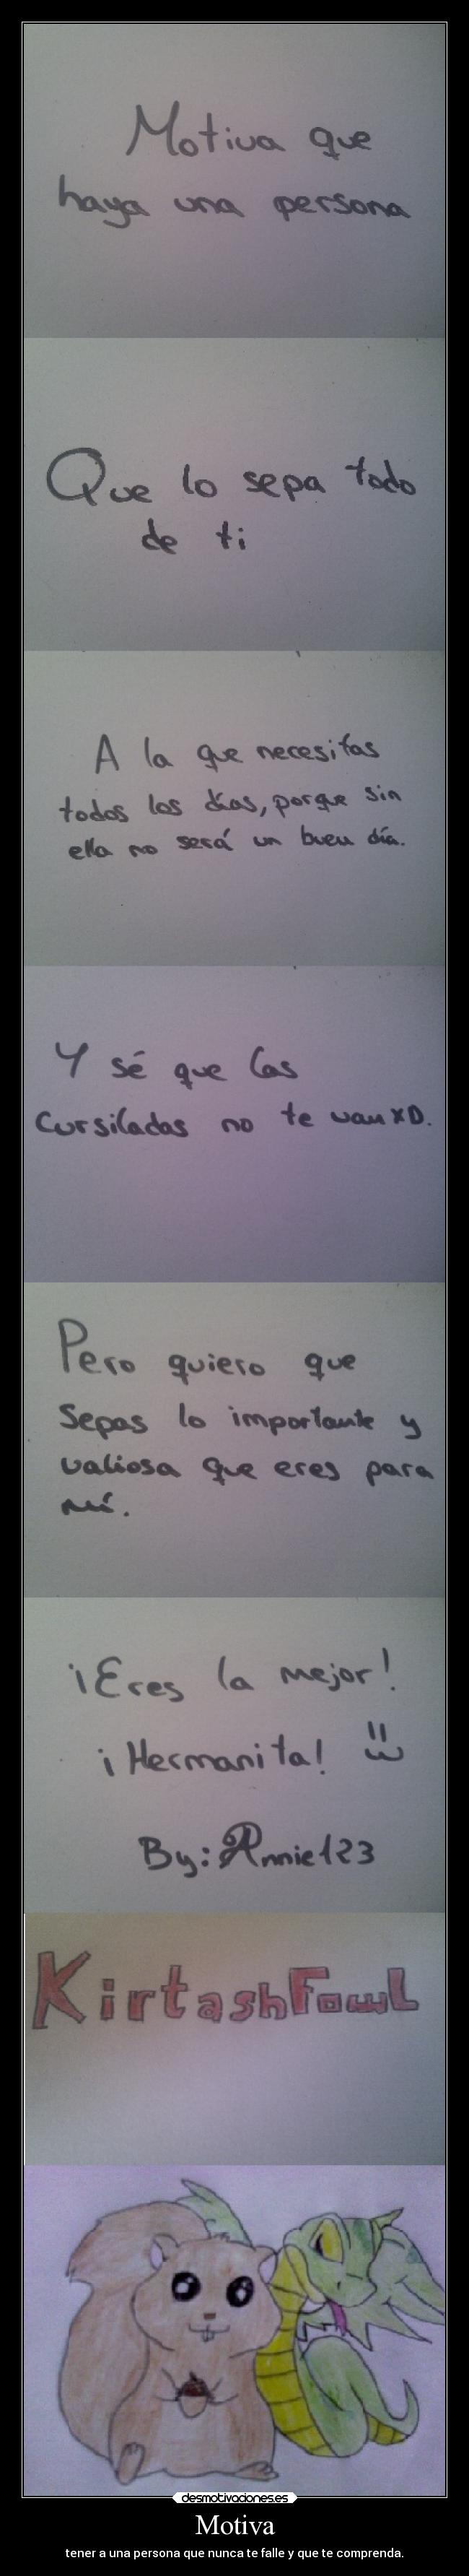 Motiva que
haya una persona
Que lo sepa todo
de ti
A la que necesitas
todos los días, porque sin
ella no será un buen día.
Y sé que las
Cursiladas no te van XD.
Pero quiero que
Sepas lo importante y
valiosa que eres para
mí.
¡Eres la mejor!
¡Hermanita! =3
By: Annie123
KirtashFowl
desmotivaciones.es
Motiva
tener a una persona que nunca te falle y que te comprenda.